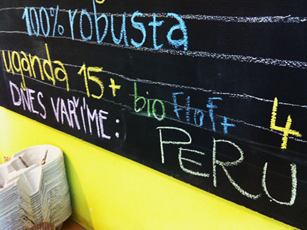 100% robusta
uganda 15+ bio Flo F+ 4
DNES VAŘÍME:
PERU